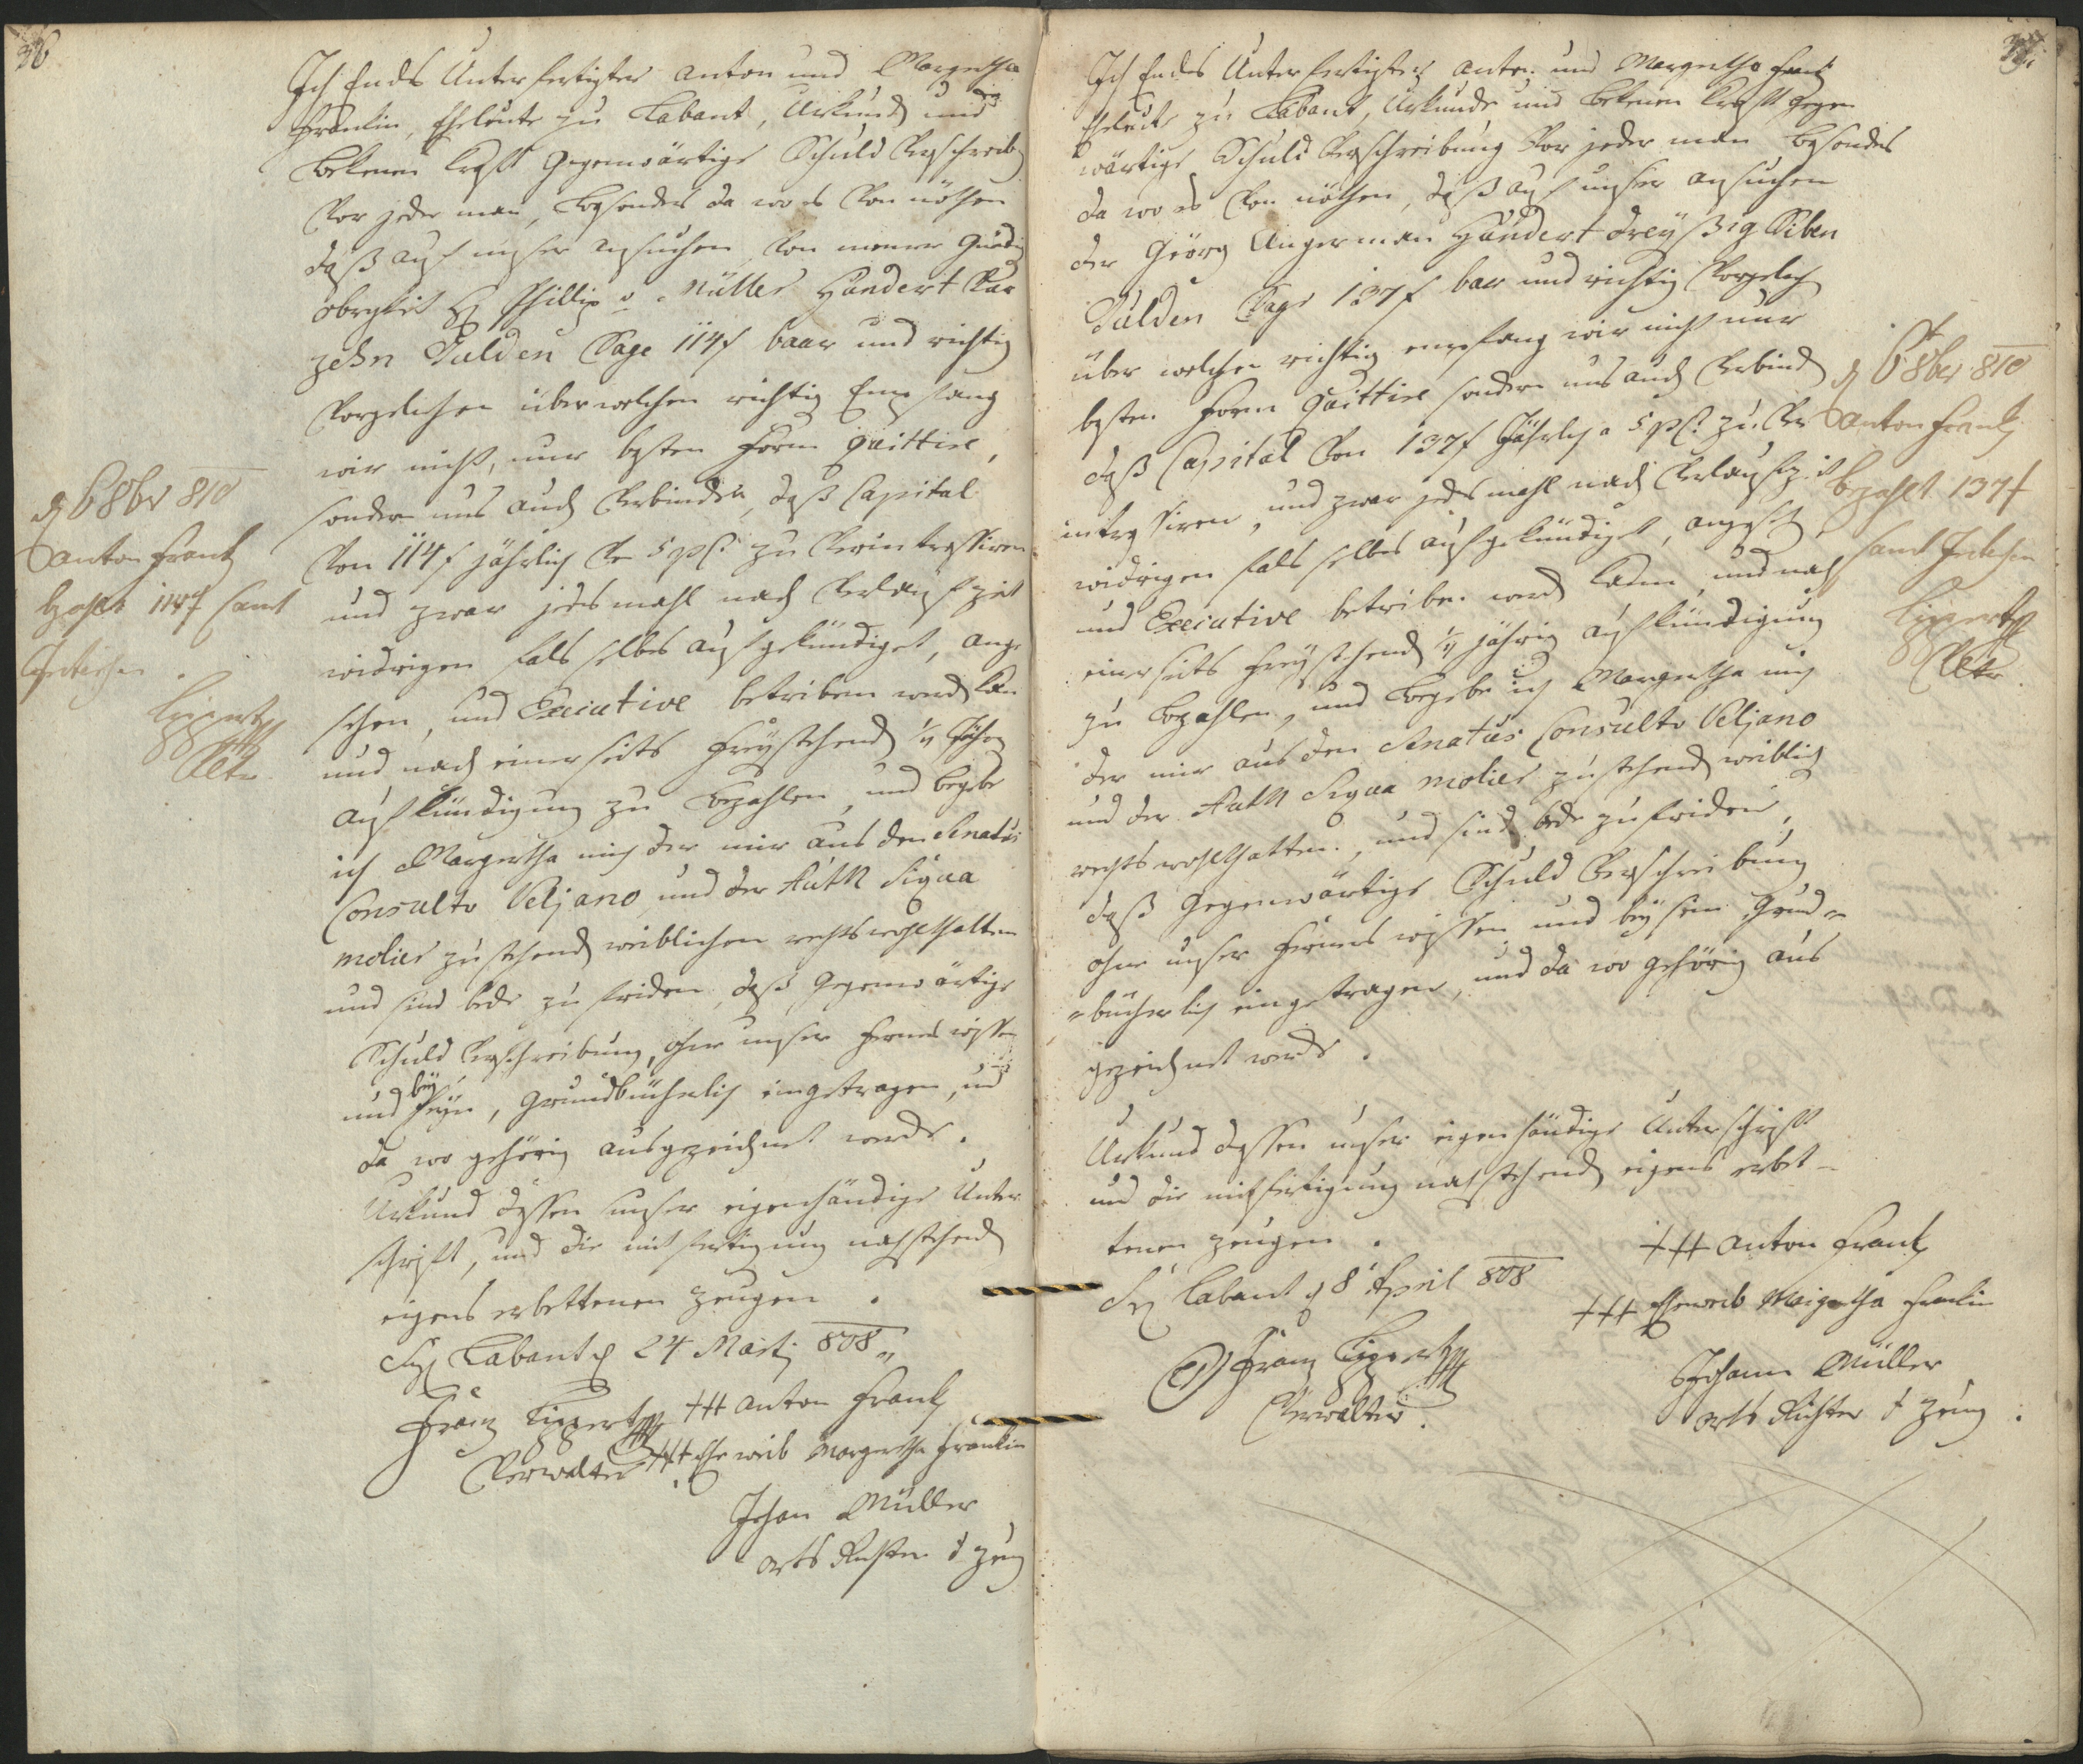 36
Ich Ends Unterfertigter Anton und Margretha
Franklin, Eheleute zu Labant, Urkund und
bekenen kraft Gegenwärtige Schuld Verschreib
Vor jeder man, besonders da wo es Von nöthen
daß auf unser ansuchen, Von meiner Gnädig
obrgkeit H Phillip v. Müller Hundert Vier
zehn Gulden Sage 114f baar und richtig
Vorgelihen über welchen richtig Empfang
wir nicht, nur besten Form quittire,
sondern uns auch Verbinden, daß Capital
Von 114f jährlich Pr 5 pct zu Verintressiren
und zwar jedes mahl nach Verlauf zeit
widrigen fals selbes aufgekündiget, ange
sehen, und Executive betriben werd kan
und nach einerseits freystehend 1/4 Jährig
aufkündigung zu bezahlen, und begebe
ich Margretha mich der mir aus den Senatus
Consulto Veljano und der Auth Siqua
molier zustehend weiblichen rechtswohlthatten
und sind bede zu friden, daß Gegenwärtige
Schuld Verschreibung, ohne unser ferners wissen
und bey seyn, Grundbücherlich eingetragen, und
da wo gehörig ausgezeichnet werde.
Urkund dessen unser eigenhändige Unter
schrift, und die mit fertigung nachstehend
eigens erbettenen Zeugen.
Sig Labant d 24 Marti 808
Franz Lippert
Verwalter
+++ Anton Frank
+++ Ehe weib Margretha Franklin
Johan Müller
orts Richter d Zeug
d 6 8br 810
Anton Frank
bezahlt 114f samt
Intressen.
Lippert
Vltr.
37.
Ich Endes Unterfertigter Anton und Margretha Frank
Eheleute zu Labant, Urkunde und bekenen kraft Gegen
wärtige Schuld Verschreibung Vor jeder man besonders
da wo es Von nöthen, daß auf unser ansuchen
der Geörg Angerman Hundert dreyßig Siben
Gulden Sage 137f bar und richtig Vorgelich
über welchen richtig empfang wir nicht nur
besten Form quittire sondern uns auch Verbind
daß Capital Von 137f Jährlich a 5 pct zu Ver
intressiren, und zwar jedes mahl nach Verlauf zeit
widrigen fals selbes aufgekündiget, angesch
und Executive betriben werd kann, und nach
einerseits freystehend 1/4 jährig aufkündigung
zu bezahlen, und begebe ich Margretha mich
der mir aus den Senatus Consulto Veljano
und der Auth Siqua molier zustehend weiblich
rechtswohlthatten, und sind bede zufriden,
daß Gegenwärtige Schuld Verschreibung
ohne unser ferners wissen und beysein Grund-
-bücherlich eingetragen, und da wo gehörig aus
gezeichnet werde.
Urkund dessen unser eigenhändige Unterschrift
und die mitfertigung nachstehend eigens erbet-
tenen Zeugen.
Sig Labant d 8 April 808
Franz Lippert
Verwalter.
+++ Anton Frank
+++ Eheweib Margretha Franklin
Johann Müller
orts Richter d Zeug.
d 6 8ber 810
Anton Frank
bezahlt 137f
samt Intressen
Lippert
Vltr.